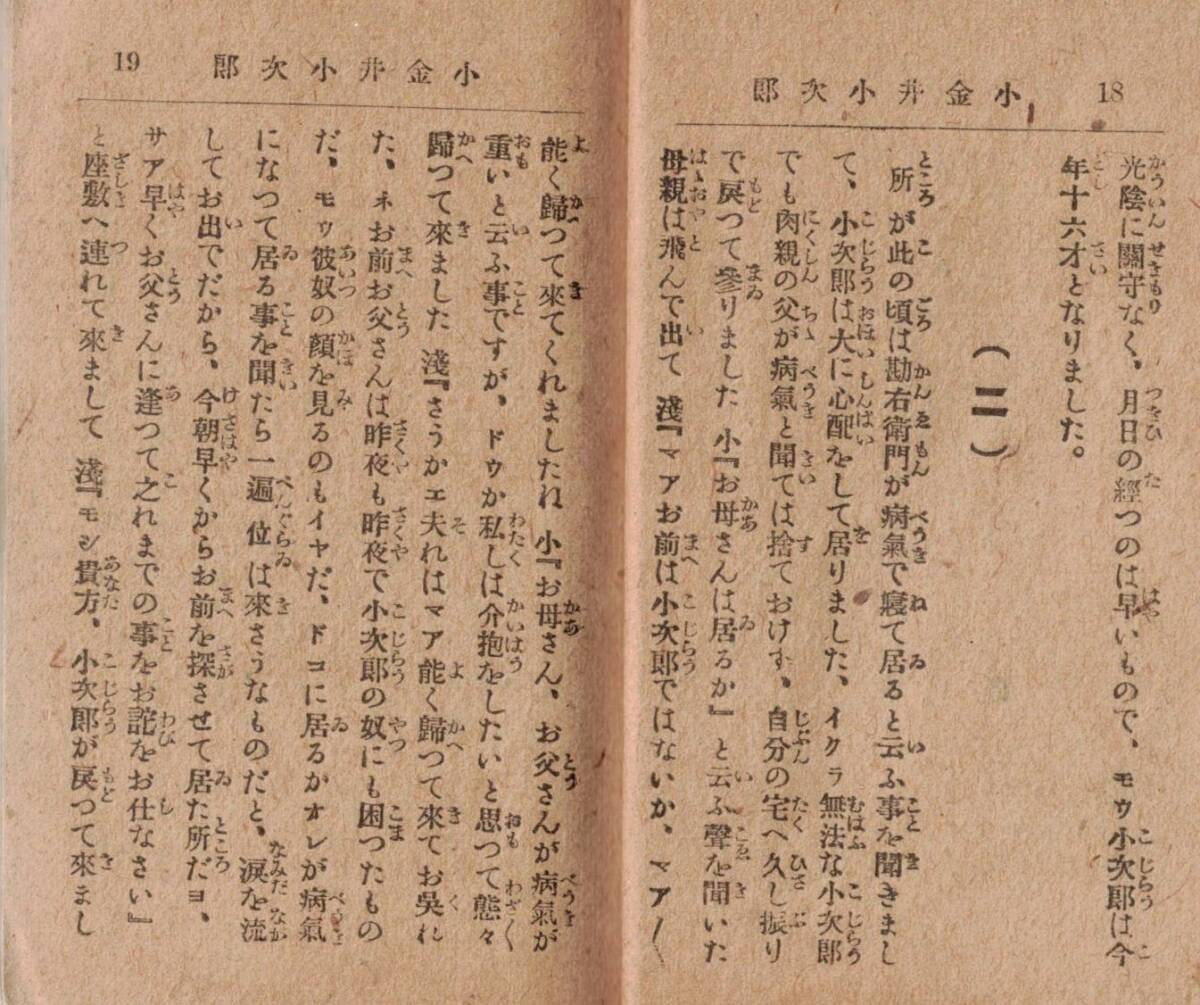 18
小金井小次郎
光陰に關守なく、月日の經つのは早いもので、モウ小次郎は今
年十六才となりました。
(二)
所が此の頃は勘右衛門が病氣で寢て居ると云ふ事を聞きまし
て、小次郎は大に心配をして居りました、イクラ無法な小次郎
でも肉親の父が病氣と聞ては捨ておけず、自分の宅へ久し振り
で戻つて參りました 小『お母さんは居るか』と云ふ聲を聞いた
母親は飛んで出て 淺『マアお前は小次郎ではないか、マア〱
19
小金井小次郎
能く歸つて來てくれましたね 小『お母さん、お父さんが病氣が
重いと云ふ事ですが、ドウか私しは介抱をしたいと思つて態々
歸つて來ました 淺『さうかエ夫れはマア能く歸つて來てお吳れ
た、ネお前お父さんは昨夜も昨夜で小次郎の奴にも困つたもの
だ、モウ彼奴の顏を見るのもイヤだ、ドコに居るかオレが病氣
になつて居る事を聞たら一遍位は來さうなものだと、淚を流
してお出でだから、今朝早くからお前を探させて居た所だヨ、
サア早くお父さんに逢つて之れまでの事をお詫をお仕なさい』
と座敷へ連れて來まして 淺『モシ貴方、小次郎が戻つて來まし